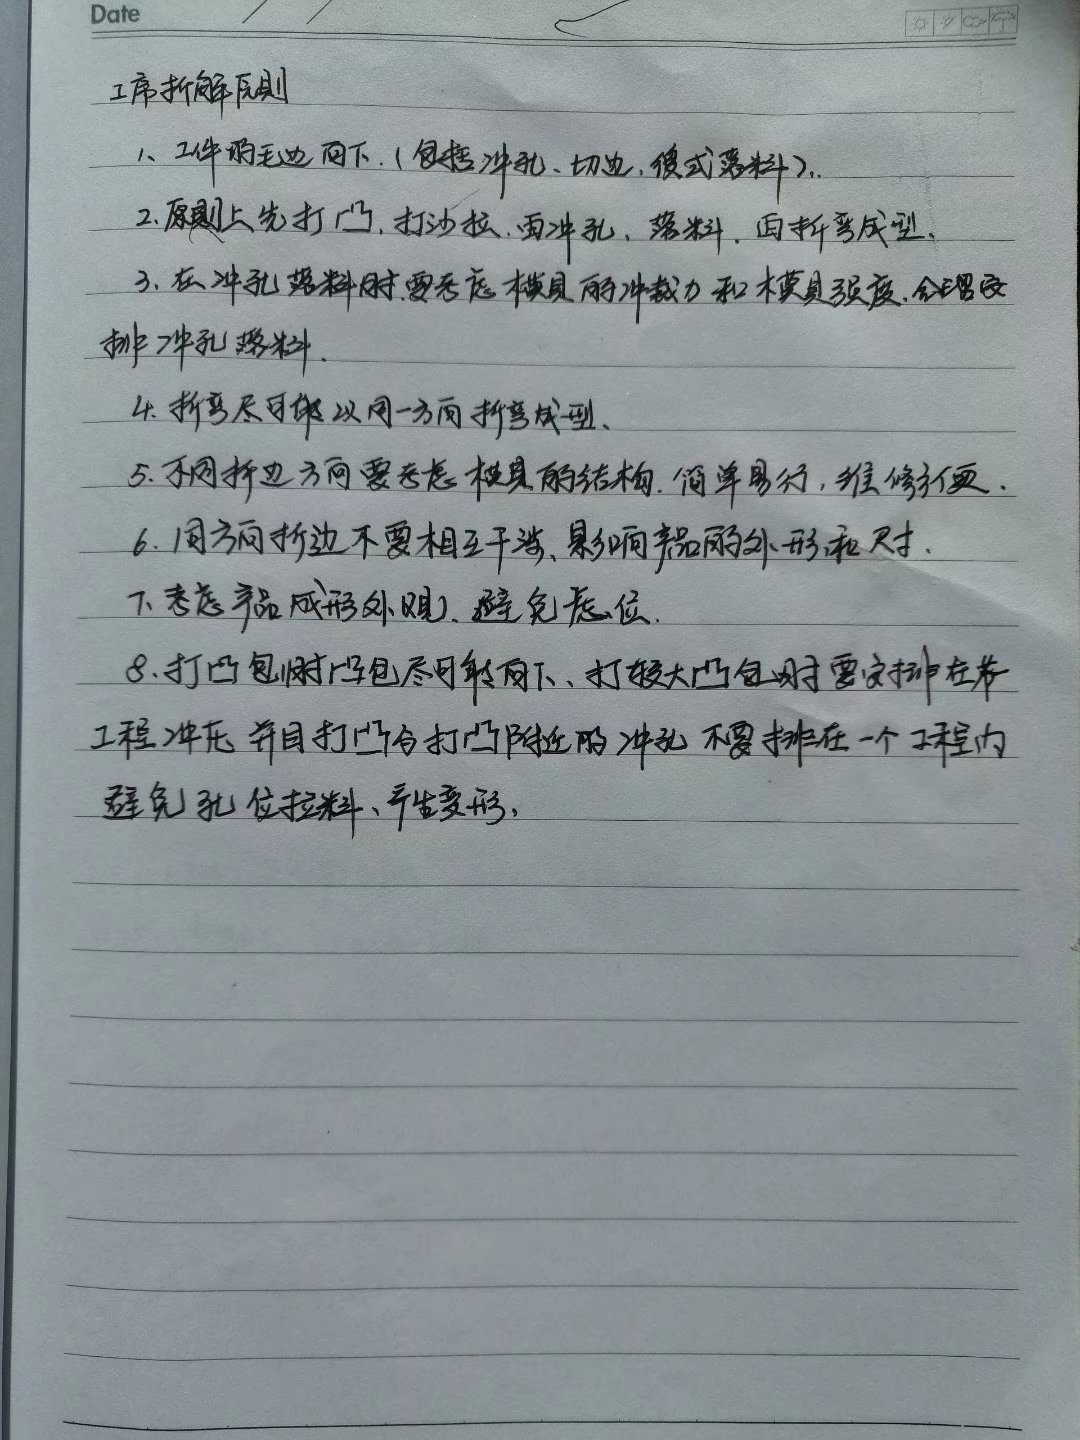 Date
工序折解原则
1、工件的毛边向下.(包括冲孔、切边,復式落料).
2.原则上先打凸,打沙拉.再冲孔、落料.再折弯成型.
3.在冲孔落料时.要考虑模具的冲裁力和模具强度.合理安
排冲孔落料.
4.折弯尽可能以同一方向折弯成型.
5.不同折边方向要考虑模具的结构.简单易行,维修方便.
6.同方向折边不要相互干涉、影响产品的外形和尺寸.
7.考虑产品成形外观、避免虑位.
8.打凸包时凸包尽可能向下、打较大凸包时要安排在
工程冲 并且打凸台打凸附近的冲孔不要排在一个工程内
避免孔位拉料、产生变形,